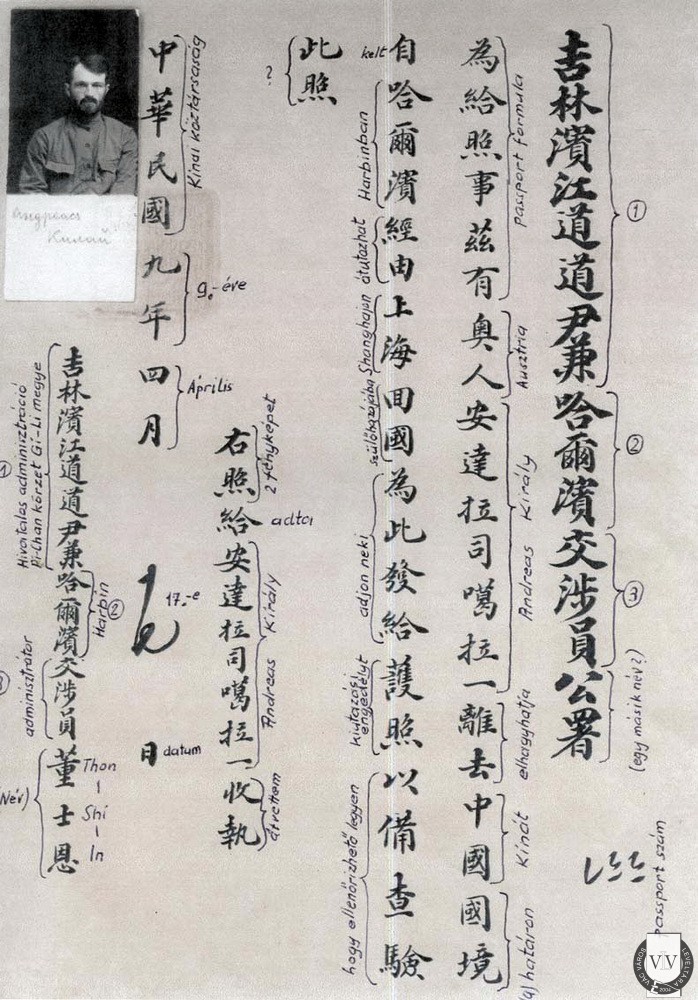 吉林濱江道道尹兼哈爾濱交涉員公署
①
②
③
(egy másik név?)
passport szám
為給照事茲有奧人安達拉司噶拉一離去中國國境
passport formula
Ausztria
Andreas Király
elhagyhatja
Kínát
határon
自哈爾濱經由上海回國為此發給護照以備查驗
kelt
Harbinban
átutazhat
Shanghajon
szülőhazájába
adjon neki
kiutazási engedélyt
hogy ellenőrizhető legyen
此照
?
右照給安達拉司噶拉一收執
2 fényképet
adtar
Andreas Király
átvettem
中華民國九年四月
日
Kínai köztársaság
9.-éve
Április
17.-e
datum
吉林濱江道道尹兼哈爾濱交涉員董士恩
Hivatalos adminisztráció
Pi-Chan körzet Gi-Li megye
Harbin
②
adminisztrátor
(Név)
Thon - Shi - In
Андреасъ
Килай
VÁC VÁROS LEVÉLTÁRA
VVL
2004